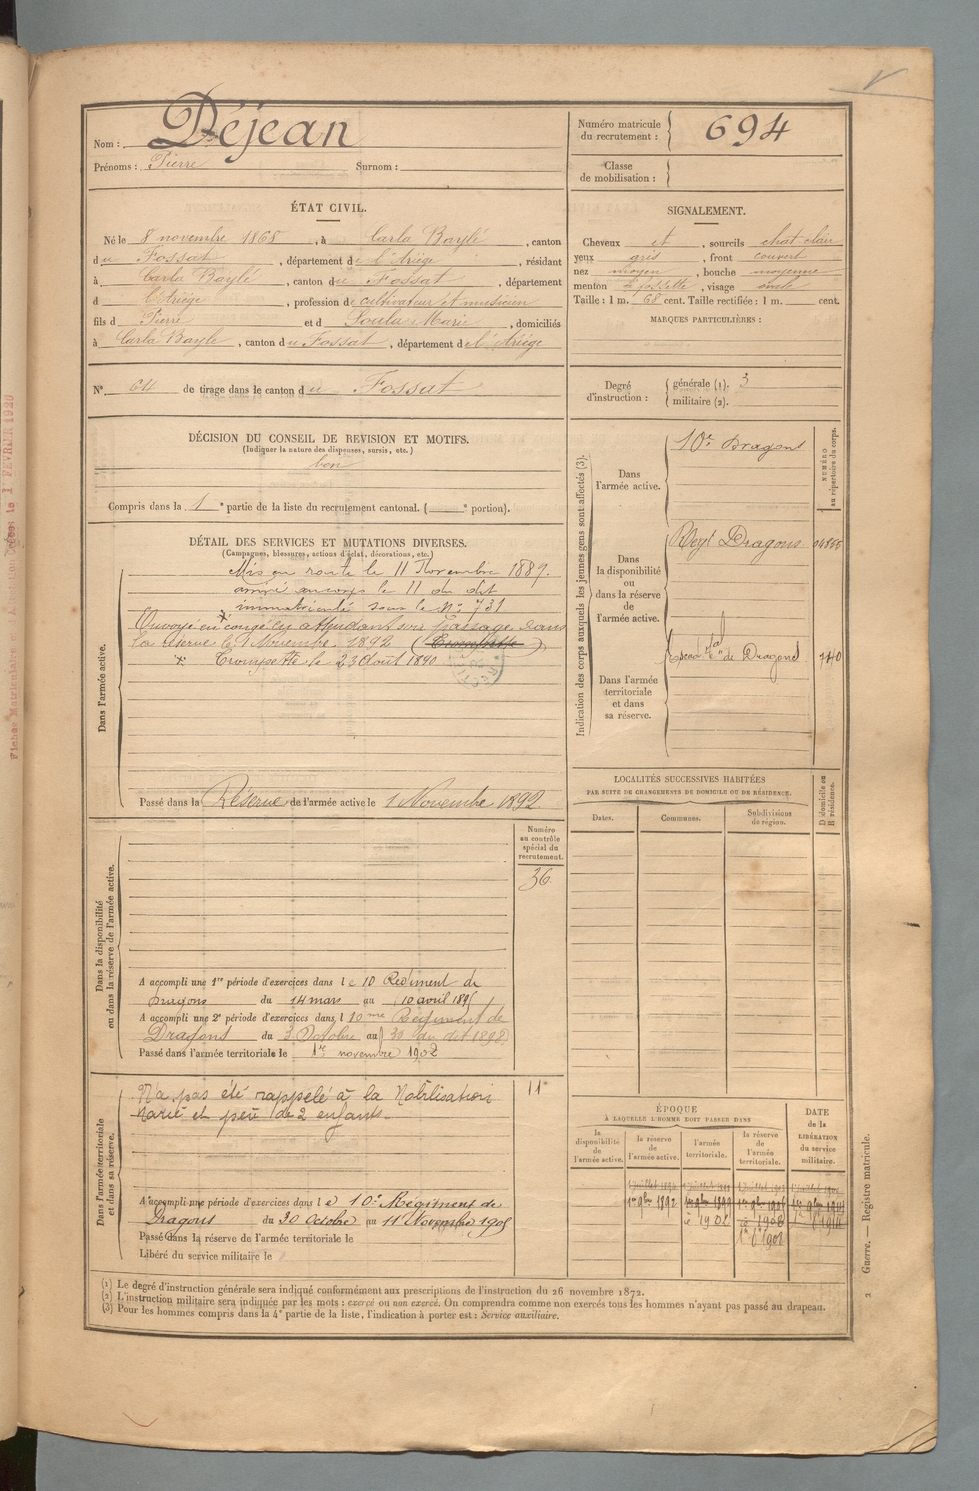 Nom : Déjean
Prénoms : Pierre Surnom :
Numéro matricule du recrutement : 694
Classe de mobilisation :
ÉTAT CIVIL.
Né le 8 novembre 1868, à Carla Baylé, canton
du Fossat, département de l'Ariège, résidant
à Carla Baylé, canton du Fossat, département
d l'Ariège, profession de cultivateur et musicien
fils d Pierre et d Soula Marie, domiciliés
à Carla Bayle, canton du Fossat, département de l'Ariège
N° 64 de tirage dans le canton du Fossat
SIGNALEMENT.
Cheveux et, sourcils chat clair
yeux gris, front couvert
nez moyen, bouche moyenne
menton à fossette, visage ovale
Taille : 1 m. 68 cent. Taille rectifiée : 1 m. cent.
MARQUES PARTICULIÈRES :
Degré d'instruction : générale (1). 3
militaire (2).
DÉCISION DU CONSEIL DE REVISION ET MOTIFS.
(Indiquer la nature des dispenses, sursis, etc.)
bon
Compris dans la 1e partie de la liste du recrutement cantonal. ( e portion).
DÉTAIL DES SERVICES ET MUTATIONS DIVERSES.
(Campagnes, blessures, actions d'éclat, décorations, etc.)
Dans l'armée active.
Mis en route le 11 Novembre 1889.
arrivé au corps le 11 du dit
immatriculé sous le N° 731
Envoyé en congé en attendant son passage dans
la réserve le 1 Novembre 1892 (Trompette)
Trompette le 23 Aout 1890
Passé dans la Réserve de l'armée active le 1 Novembre 1892
Indication des corps auxquels les jeunes gens sont affectés (3).
NUMÉRO au répertoire du corps.
Dans l'armée active.
10e Dragons
Dans la disponibilité ou dans la réserve de l'armée active.
Dragons
Dans l'armée territoriale et dans sa réserve.
de Dragons 740
LOCALITÉS SUCCESSIVES HABITÉES
PAR SUITE DE CHANGEMENTS DE DOMICILE OU DE RÉSIDENCE.
Dates. Communes. Subdivisions de région.
D domicile ou R résidence.
Dans la disponibilité ou dans la réserve de l'armée active.
Numéro au contrôle spécial du recrutement.
36
A accompli une 1re période d'exercices dans le 10 Régiment de
Dragons du 14 mars au 10 avril
A accompli une 2e période d'exercices dans l 10me Régiment de
Dragons du 3 Octobre au 30 du dit 1898
Passé dans l'armée territoriale le 1er novembre 1902
Dans l'armée territoriale et dans sa réserve.
11
N'a pas été rappelé à la Mobilisation
Marié et père de 2 enfants.
A accompli une période d'exercices dans le 10e Régiment de
Dragons du 30 Octobre au 11 Novembre 1905
Passé dans la réserve de l'armée territoriale le
Libéré du service militaire le
ÉPOQUE
À LAQUELLE L'HOMME DOIT PASSER DANS
la disponibilité de l'armée active.
la réserve de l'armée active.
l'armée territoriale.
la réserve de l'armée territoriale.
DATE de la LIBÉRATION du service militaire.
1er 9bre 1892
1902
1908
(1) Le degré d'instruction générale sera indiqué conformément aux prescriptions de l'instruction du 26 novembre 1872.
(2) L'instruction militaire sera indiquée par les mots : exercé ou non exercé. On comprendra comme non exercés tous les hommes n'ayant pas passé au drapeau.
(3) Pour les hommes compris dans la 4e partie de la liste, l'indication à porter est : Service auxiliaire.
Guerre. — Registre matricule.